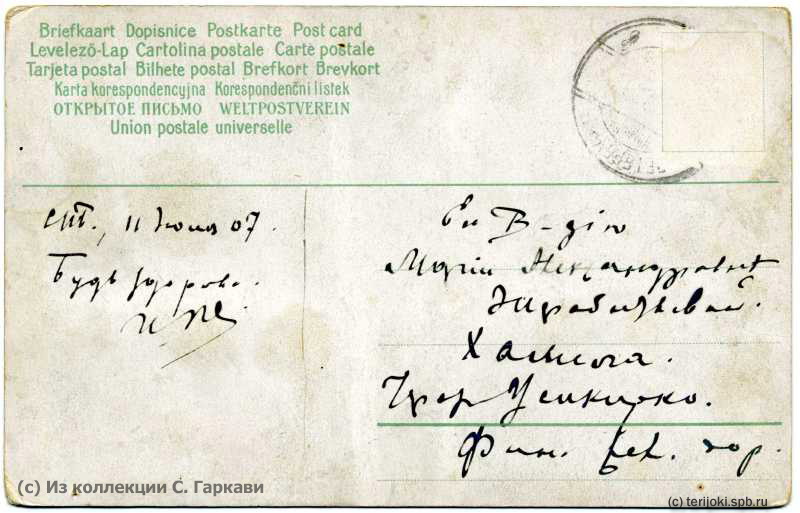 Briefkaart Dopisnice Postkarte Post card
Levelező-Lap Cartolina postale Carte postale
Tarjeta postal Bilhete postal Brefkort Brevkort
Karta korespondencyjna Korespondenční listek
ОТКРЫТОЕ ПИСЬМО WELTPOSTVEREIN
Union postale universelle
СПб., 11 Июня 07.
Будь здорова.
Ея В-дію
Маріи Александровне
Хал
Чрез Усикирко.
Фин. жел. дор.
(c) Из коллекции С. Гаркави
(c) terijoki.spb.ru